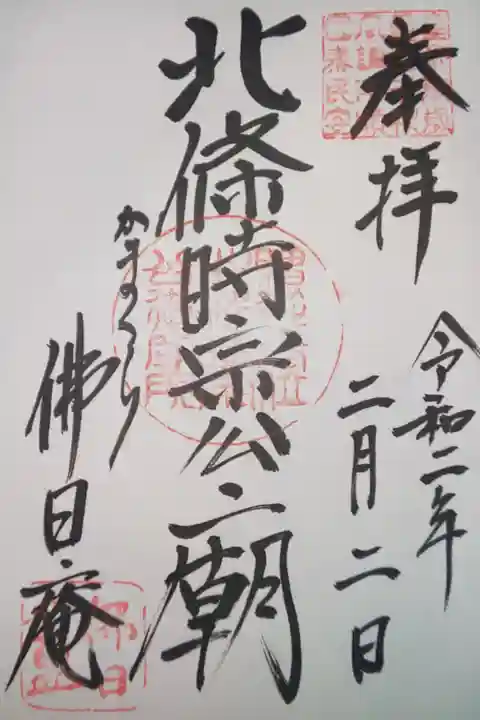 奉拝
令和二年
二月二日
北條時宗公之廟
かまくら
佛日庵
佛日